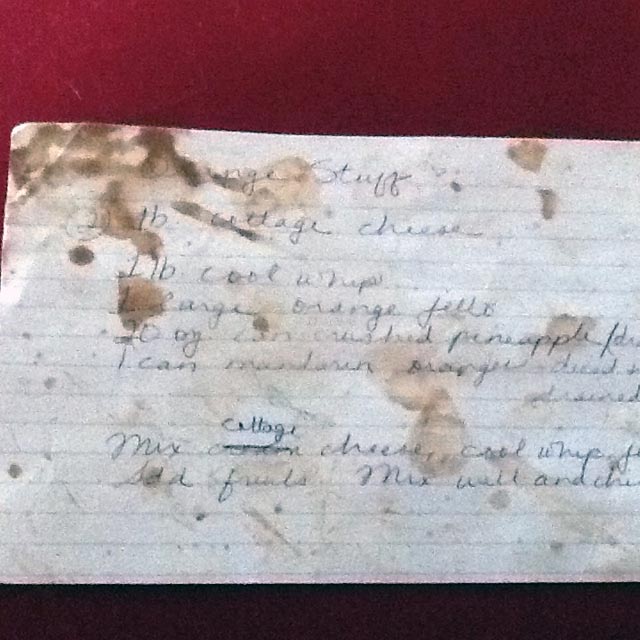 Orange Stuff
lb. cottage cheese
1 lb cool whip
1 large orange jello
20 oz can crushed pineapple/dr
1 can mandarin oranges
drained
cottage
Mix cheese, cool whip, je
Add fruits. Mix well and chi